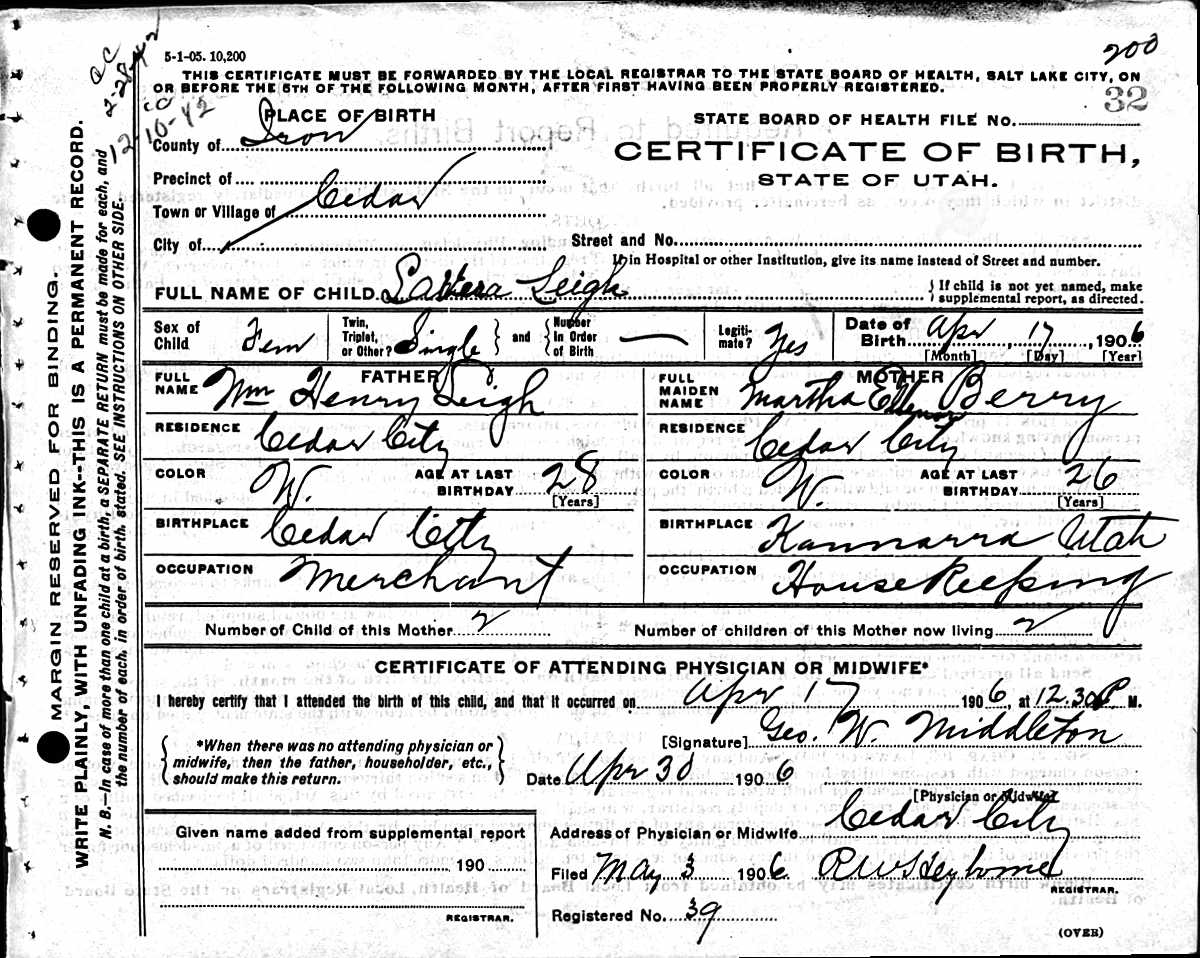 5-1-05. 10,200
200
THIS CERTIFICATE MUST BE FORWARDED BY THE LOCAL REGISTRAR TO THE STATE BOARD OF HEALTH, SALT LAKE CITY, ON
OR BEFORE THE 5TH OF THE FOLLOWING MONTH, AFTER FIRST HAVING BEEN PROPERLY REGISTERED.
32
2-28-42
12-10-42
MARGIN RESERVED FOR BINDING.
WRITE PLAINLY, WITH UNFADING INK--THIS IS A PERMANENT RECORD.
N. B.—In case of more than one child at a birth, a SEPARATE RETURN must be made for each, and
the number of each, in order of birth, stated. SEE INSTRUCTIONS ON OTHER SIDE.
PLACE OF BIRTH
County of Iron
Precinct of
Town or Village of Cedar
City of
STATE BOARD OF HEALTH FILE NO.
CERTIFICATE OF BIRTH,
STATE OF UTAH.
Street and No.
If in Hospital or other Institution, give its name instead of Street and number.
FULL NAME OF CHILD. LaVera Leigh
{ If child is not yet named, make
supplemental report, as directed.
Sex of Child Fem
Twin, Triplet, or Other? Single } and { Number In Order of Birth —
Legiti-mate? Yes
Date of Birth Apr 17, 1906
[Month] [Day] [Year]
FATHER
FULL NAME Wm Henry Leigh
RESIDENCE Cedar City
COLOR W. AGE AT LAST BIRTHDAY 28 [Years]
BIRTHPLACE Cedar City
OCCUPATION Merchant
MOTHER
FULL MAIDEN NAME Martha Ellenor Berry
RESIDENCE Cedar City
COLOR W. AGE AT LAST BIRTHDAY 26 [Years]
BIRTHPLACE Kannarra Utah
OCCUPATION Housekeeping
Number of Child of this Mother 2 Number of children of this Mother now living 2
CERTIFICATE OF ATTENDING PHYSICIAN OR MIDWIFE*
I hereby certify that I attended the birth of this child, and that it occurred on Apr 17 1906, at 12.30 P M.
{ *When there was no attending physician or
midwife, then the father, householder, etc.,
should make this return. }
[Signature] Geo. W. Middleton
Date Apr 30 1906
[Physician or Midwife]
Given name added from supplemental report
190
REGISTRAR.
Address of Physician or Midwife Cedar City
Filed May 3 1906. R W Heyborne
REGISTRAR.
Registered No. 39
(OVER)